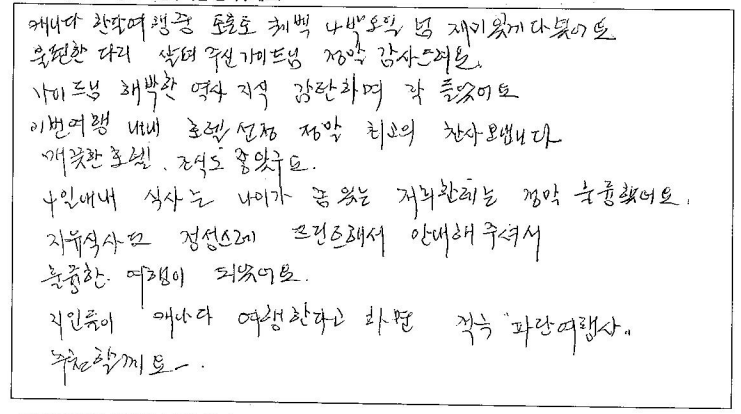 캐나다 한달여행중 토론토 퀘백 4박5일 넘 재미있게 다녔어요
불편한 다리 살펴주신 가이드님 정말 감사드려요.
가이드님 해박한 역사 지식 감탄하며 잘 들었어요
이번여행 내내 호텔선정 정말 최고의 찬사보냅니다
깨끗한 호텔. 조식도 좋았구요.
4일내내 식사는 나이가 좀 있는 저희한테는 정말 훌륭했어요.
자유식사도 정성스레 프린트해서 안내해 주셔서
훌륭한 여행이 되었어요.
지인들이 캐나다 여행한다고 하면 적극 "파란여행사"
추천할께요-.